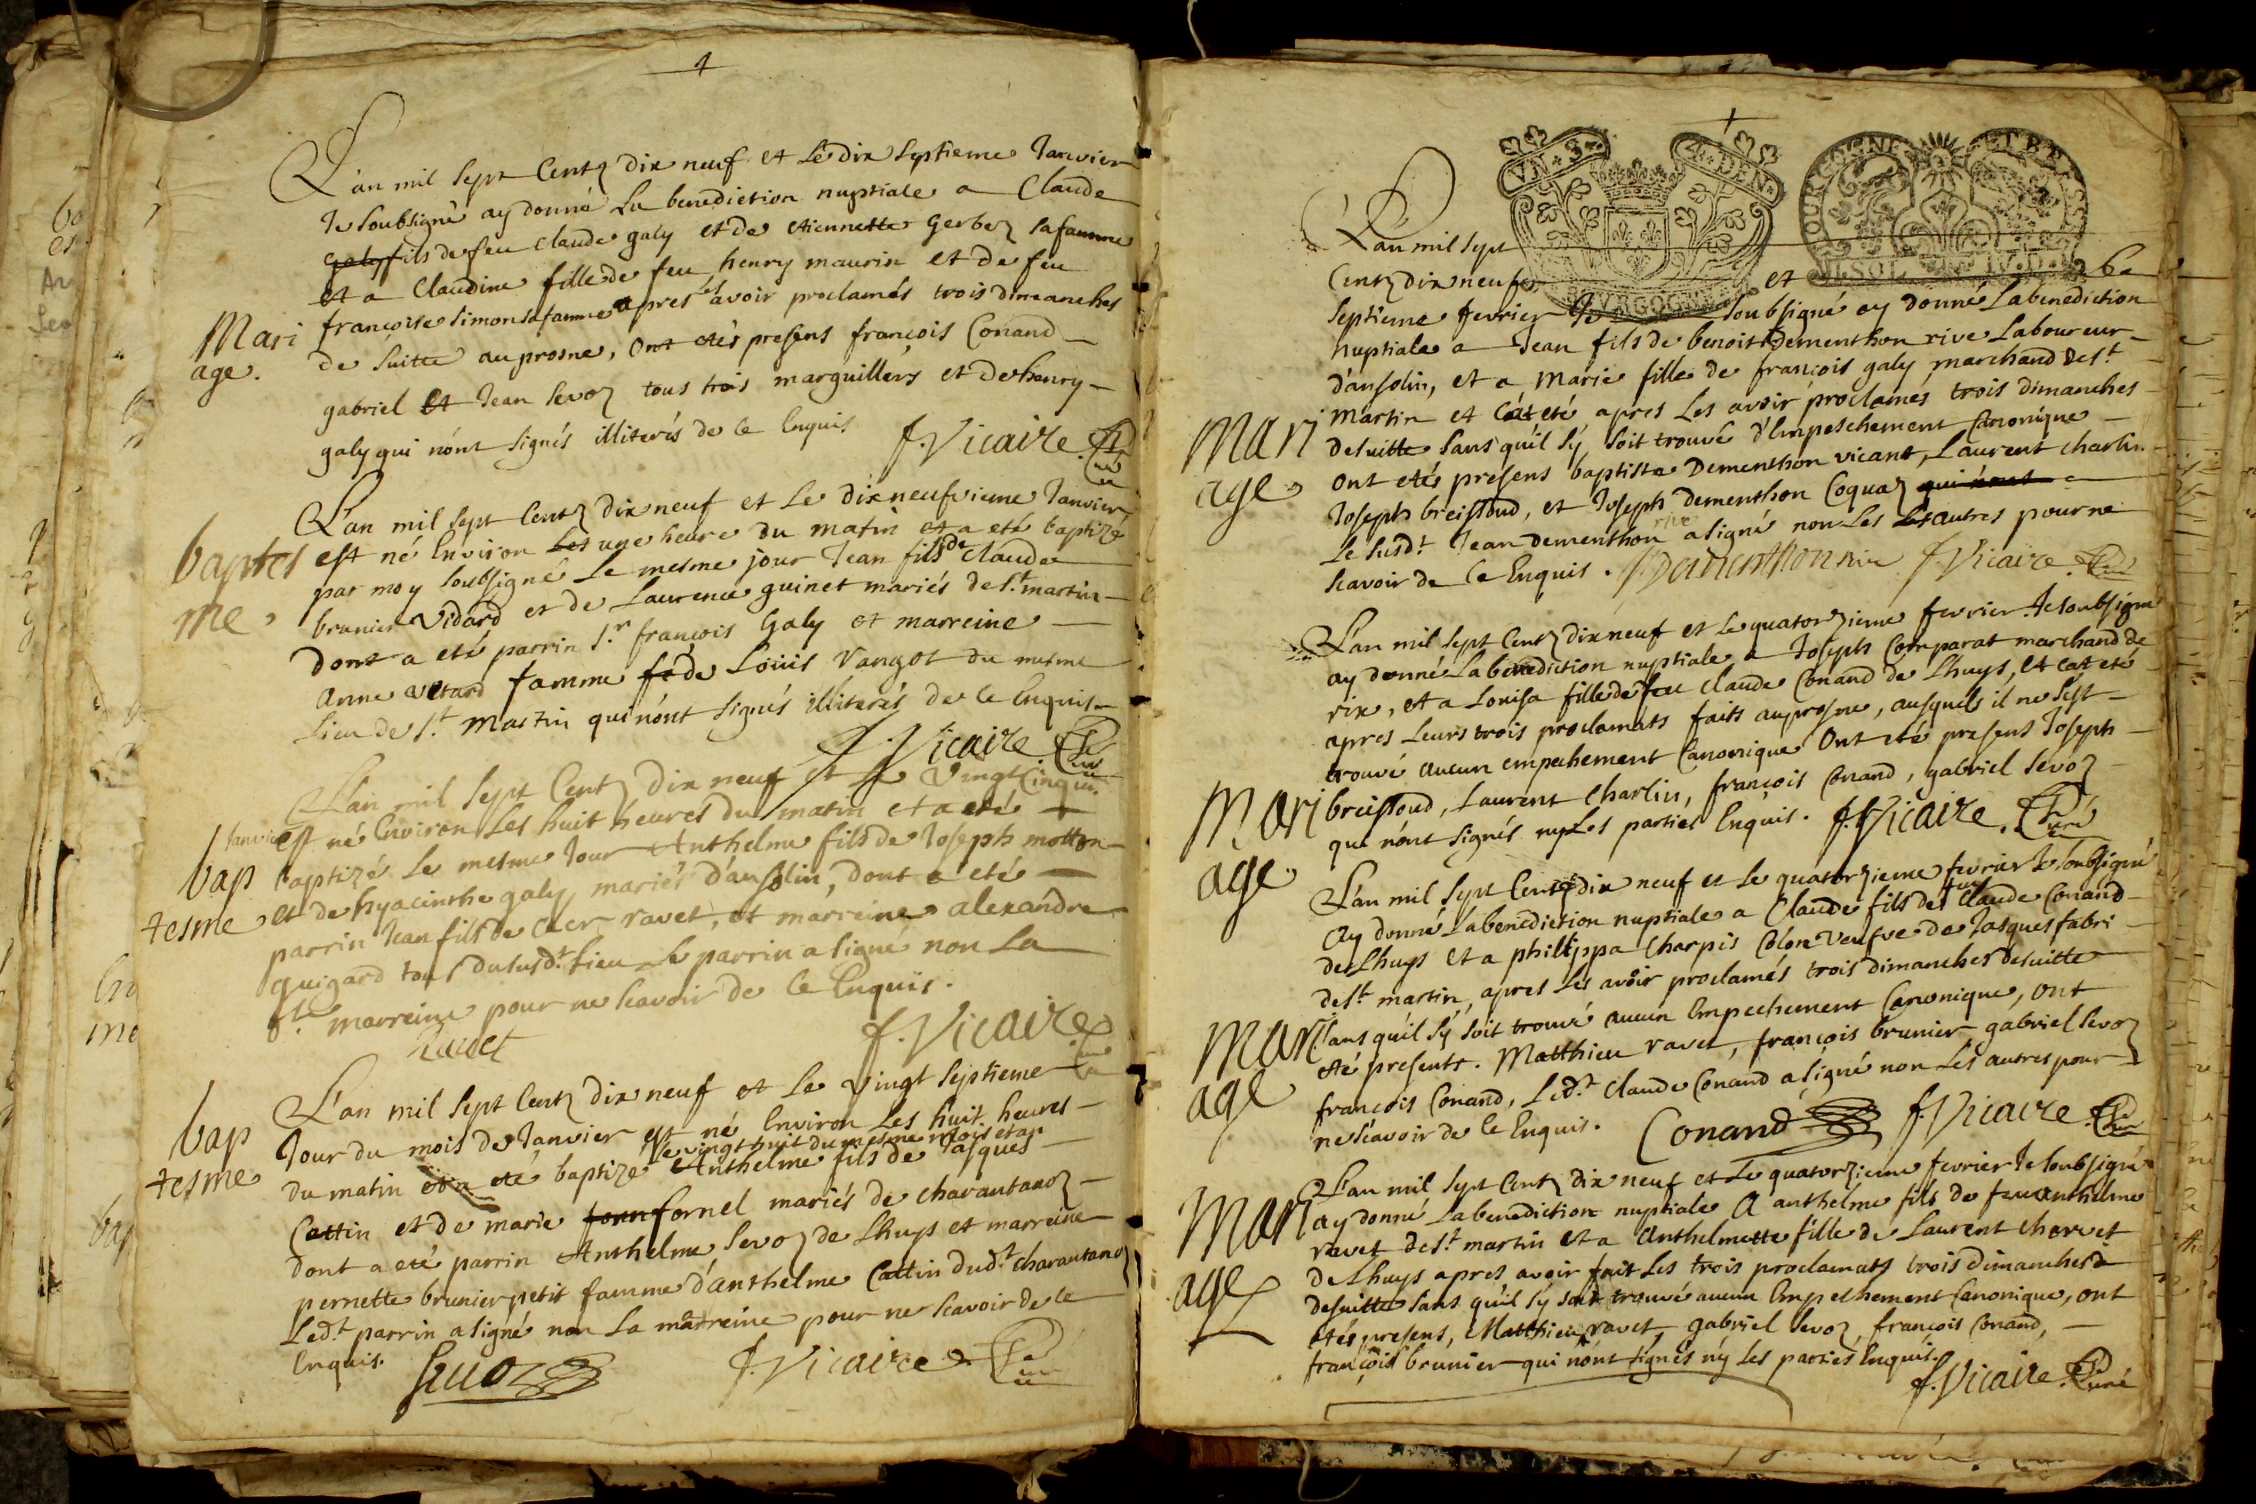 L'an mil sept Centz dix neuf et le dix septieme Janvier
Je soubsigné ay donné La benediction nuptiale a Claude
galy fils de feu Claude galy et de etiennette Gerbez sa famme
et a Claudine fille de feu henry maurin et de feu
françoise simon sa famme apres les avoir proclamés trois dimanches
Mari
age.
de suitte au prosne, ont etés presens françois Conand
gabriel et Jean sevoz tous trois marguilliers et de henry
galy qui n'ont signés illiterés de ce Enquis
f. Vicaire Curé
L'an mil sept Centz dix neuf et le dix neufvieme Janvier
est né Environ les une heure du matin et a eté baptizé
baptes
me
par moy soubsigné le mesme jour Jean fils de Claude
brunier Vidard et de Laurence guinet mariés de st. martin
Dont a eté parrin s.r françois Galy et marreine
anne Vetard famme fe de Loüis Vangot du mesme
Lieu de st. Martin qui n'ont signés illiterés de ce Enquis
f. Vicaire Curé
L'an mil sept Centz dix neuf et le Vingt Cinqui.
Janvier est né Environ les huit heures du matin et a eté
bap
tesme
baptizé le mesme Jour Anthelme fils de Joseph motton
et de hyacinthe galy, mariés d'ansolin, dont a eté
parrin Jean fils de Cler ravet, et marreine alexandre
guigard tous du susd.t Lieu le parrin a signé non La
d.te marreine pour ne scavoir de ce Enquis.
Ravet
f. Vicaire Curé
L'an mil sept Centz dix neuf et le Vingt septieme
bap
tesme
Jour du mois de Janvier est né Environ les huit heures
le vingt huit du mesme mois et an
du matin et a eté baptizé Anthelme fils de Jasques
Cattin et de marie forn fornel mariés de charantanoz
dont a eté parrin Anthelme Sevoz de Lhuys et marreine
pernette brunier petit famme d'anthelme Cattin dud.t charantanoz
Led.t parrin a signé non La marreine pour ne scavoir de ce
Enquis.
Sevoz
f. Vicaire Curé
VN 3 4 DEN
BOURGOGNE
BOURGOGNE ET BRESSE
L'an mil sept
Centz dix neuf et le
septieme fevrier Je soubsigné ay donné La benediction
nuptiale a Jean fils de benoist dementhon rive Laboureur
d'ansolin, et a Marie fille de françois galy marchand de st.
Mari
age
martin et c'at eté apres les avoir proclamés trois dimanches
de suitte sans qu'il s'y soit trouvé d'Empeschement Canonique
ont etés presens baptiste Dementhon vicant, Laurent charlin
Joseph breissoud, et Joseph dementhon Coquaz qui n'ont
le susd.t Jean dementhon rive a signé non les les autres pour ne
scavoir de ce Enquis. J. Dementhon rive f. Vicaire Curé
L'an mil sept Centz dix neuf et le quatorzieme fevrier Je soubsigné
ay donné La benediction nuptiale a Joseph Comparat marchand de
rix, et a Louisa fille de feu Claude Conand de Lhuys, et c'at eté
apres Leurs trois proclamats faits au prosne, ausquels il ne s'est
trouvé aucun empechement Canonique ont eté presens Joseph
Mari
age
breissoud, Laurent Charlin, françois Conand, gabriel sevoz
qui n'ont signés ny Les parties Enquis. f. Vicaire Curé
L'an mil sept Centz dix neuf et le quatorzieme fevrier Je soubsigné
Ay donné La benediction nuptiale a Claude fils de feu Claude Conand
de Lhuys et a philippa Charpis Colon Veufve de Jasques fabri
de st. martin, apres les avoir proclamés trois dimanches de suitte
Mari
age
sans qu'il s'y soit trouvé aucun Empechement Canonique, ont
eté presents. Matthieu ravet, françois brunier gabriel sevoz
françois Conand, Led.t Claude Conand a signé non Les autres pour
ne scavoir de ce Enquis. Conand f. Vicaire Curé
L'an mil sept Centz dix neuf et Le quatorzieme fevrier Je soubsigné
Mari
age
ay donné La benediction nuptiale A anthelme fils de feu anthelme
ravet de st. martin et a Anthelmette fille de Laurent Charvet
de Lhuys apres avoir fait Les trois proclamats trois dimanches
de suitte sans qu'il s'y soit trouvé aucun Empechement Canonique, ont
etés presens, Matthieu ravet, gabriel sevoz, françois Conand,
françois brunier qui n'ont signés ny Les parties Enquis.
f. Vicaire Curé